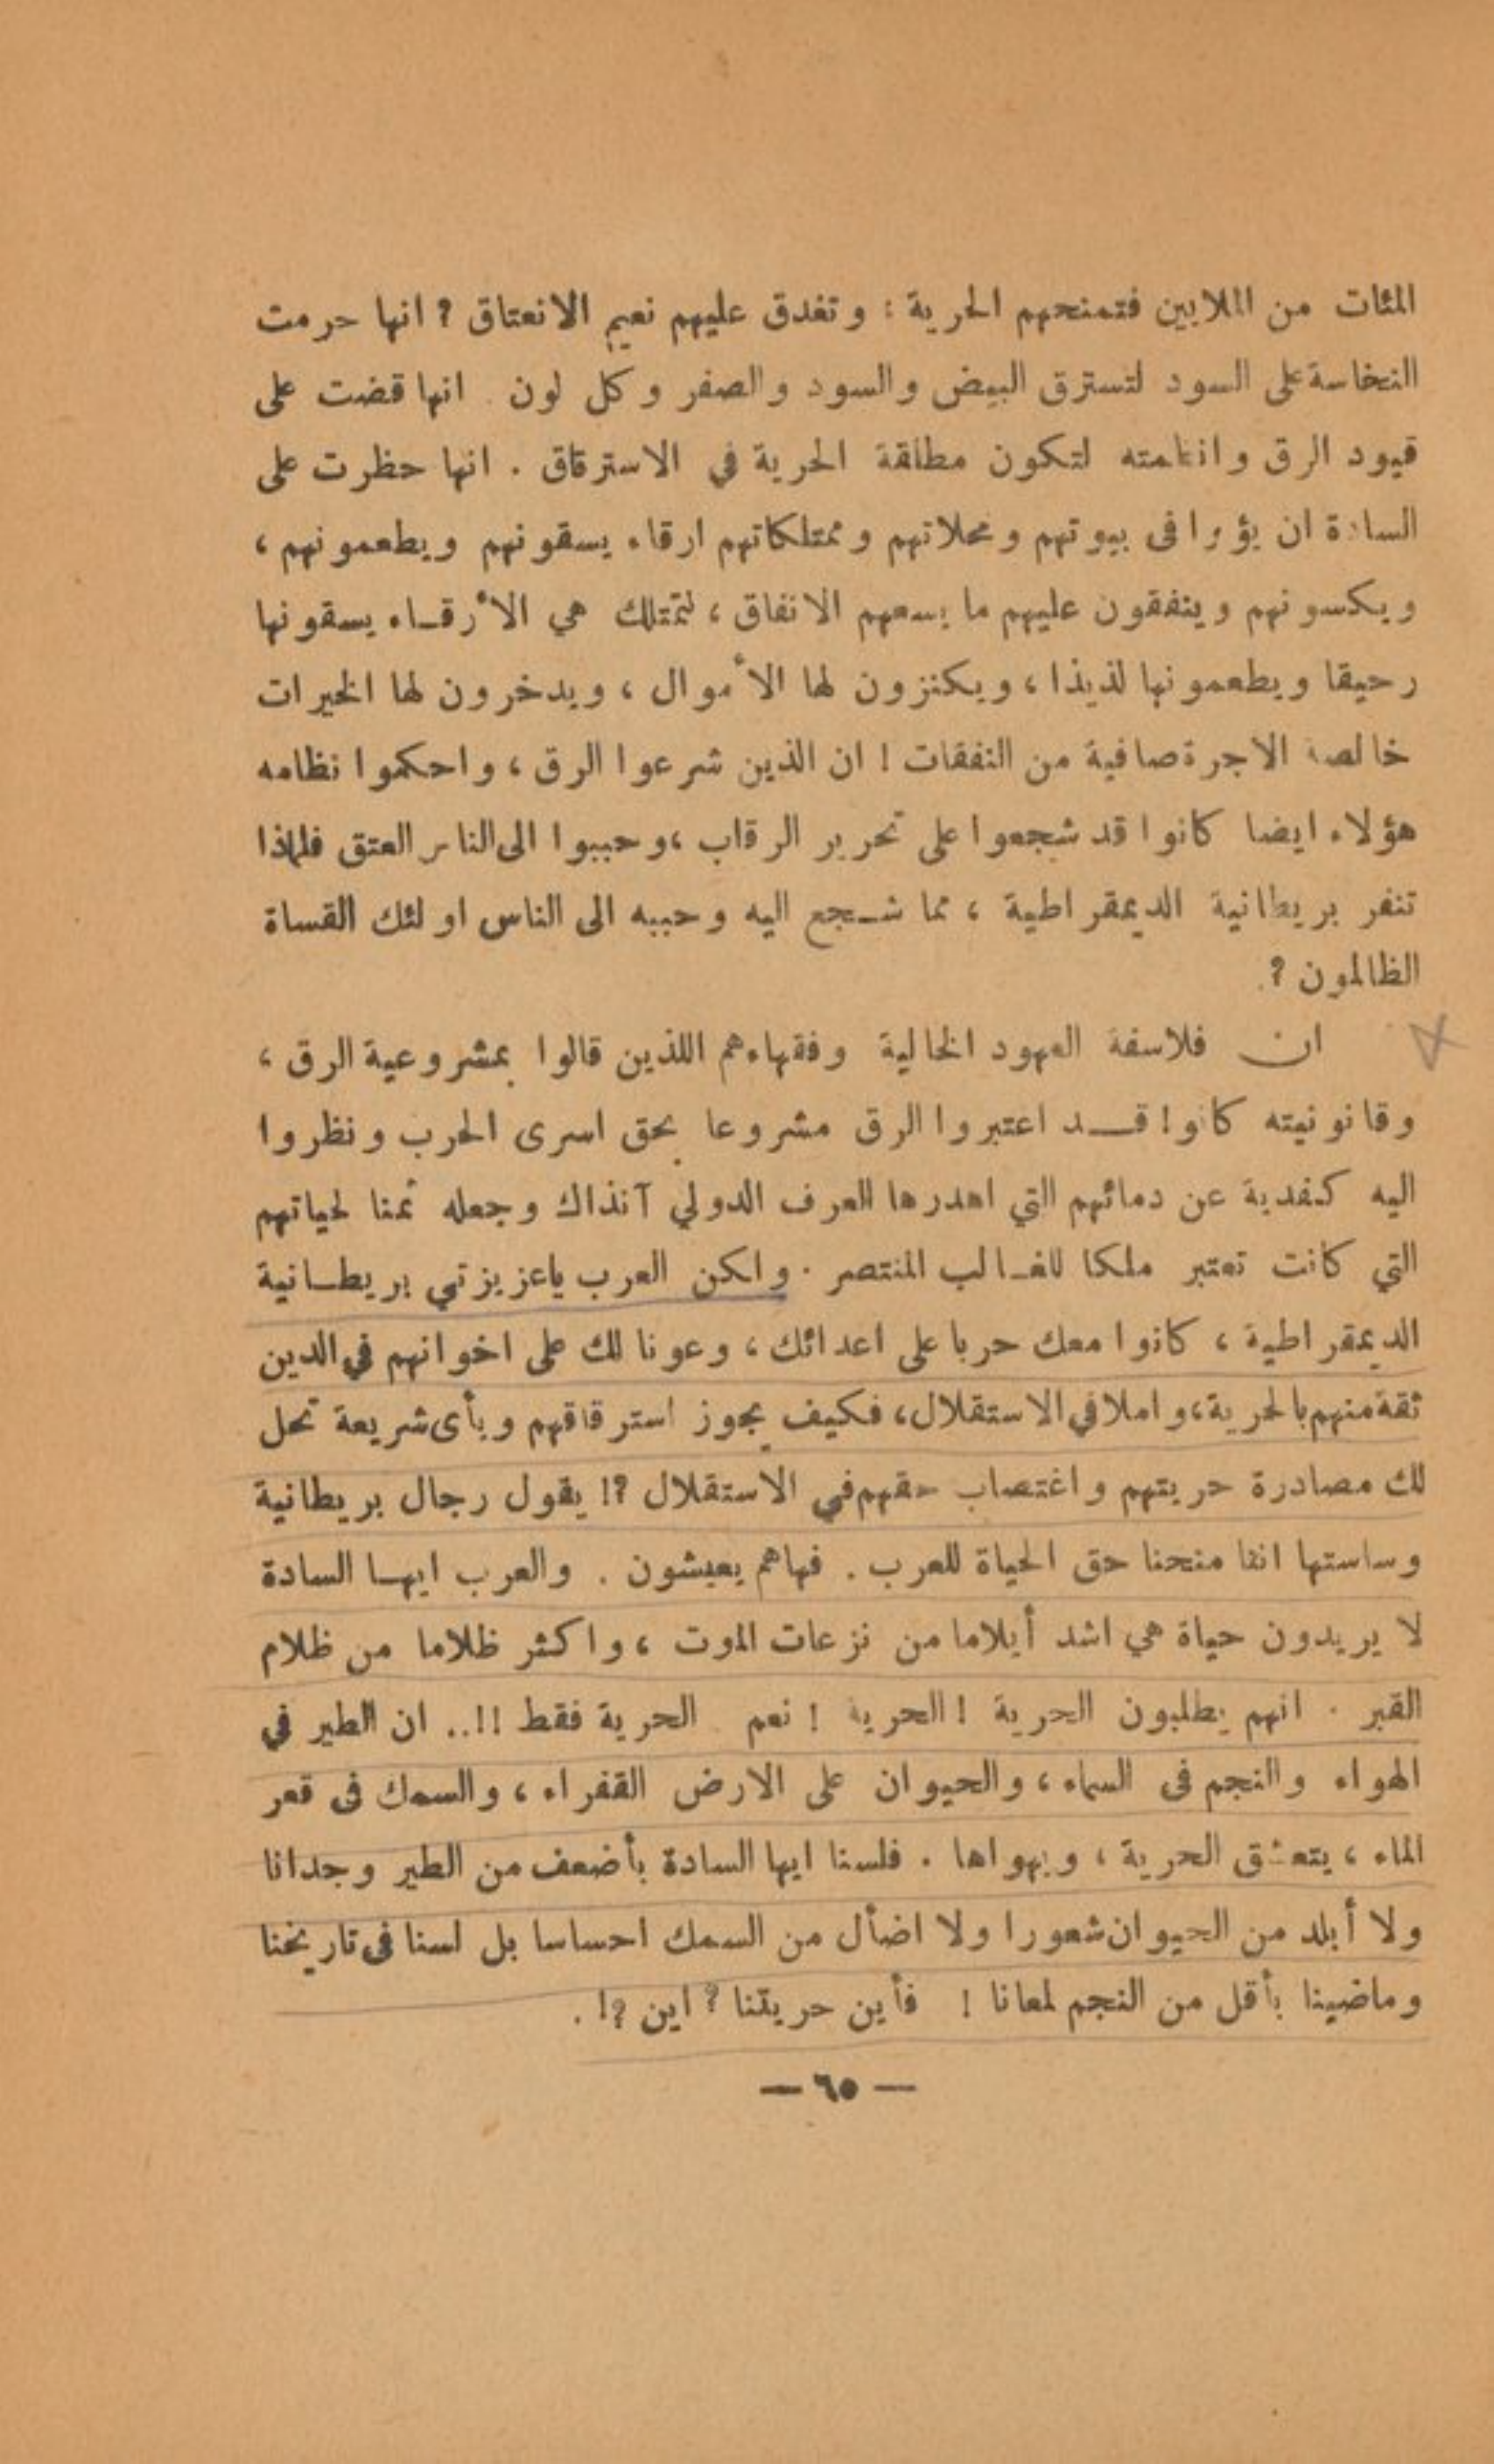 المئات من الملايين فتمنحهم الحرية : وتغدق عليهم نعيم الانعتاق ؟ انها حرمت
النخاسة على السود لتسترق البيض والسود والصفر وكل لون . انها قضت على
قيود الرق وانظمته لتكون مطلقة الحرية في الاسترقاق . انها حظرت على
السادة ان يؤوا فى بيوتهم ومحلاتهم وممتلكاتهم ارقاء يسقونهم ويطعمونهم ،
ويكسونهم وينفقون عليهم ما يسعهم الانفاق ، لتمتلك هي الأرقاء يسقونها
رحيقا ويطعمونها لذيذا ، ويكنزون لها الأموال ، ويدخرون لها الخيرات
خالصة الاجرة صافية من النفقات ! ان الذين شرعوا الرق ، واحكموا نظامه
هؤلاء ايضا كانوا قد شجعوا على تحرير الرقاب ، وحببوا الى الناس العتق فلماذا
تنفر بريطانية الديمقراطية ، مما شجع اليه وحببه الى الناس اولئك القساة
الظالمون ؟.
ان فلاسفة العهود الخالية وفقهاءهم اللذين قالوا بمشروعية الرق ،
وقانونيته كانوا قد اعتبروا الرق مشروعا بحق اسرى الحرب ونظروا
اليه كفدية عن دمائهم التي اهدرها العرف الدولي آنذاك وجعله ثمنا لحياتهم
التي كانت تعتبر ملكا للغالب المنتصر . ولكن العرب ياعزيزتي بريطانية
الديمقراطية ، كانوا معك حربا على اعدائك ، وعونا لك على اخوانهم في الدين
ثقة منهم بالحرية، واملا في الاستقلال، فكيف يجوز استرقاقهم وبأى شريعة تحل
لك مصادرة حريتهم واغتصاب حقهم في الاستقلال ؟! يقول رجال بريطانية
وساستها اننا منحنا حق الحياة للعرب . فهاهم يعيشون . والعرب ايها السادة
لا يريدون حياة هي اشد أيلاما من نزعات الموت ، واكثر ظلاما من ظلام
القبر . انهم يطلبون الحرية ! الحرية ! نعم الحرية فقط !!.. ان الطير في
الهواء والنجم فى السماء ، والحيوان على الارض القفراء ، والسمك فى قعر
الماء ، يتعشق الحرية ، ويهواها . فلسنا ايها السادة بأضعف من الطير وجدانا
ولا أبلد من الحيوان شعورا ولا اضأل من السمك احساسا بل لسنا فى تاريخنا
وماضينا بأقل من النجم لمعانا ! فأين حريتنا ؟ اين ؟! .
— ٦٥ —